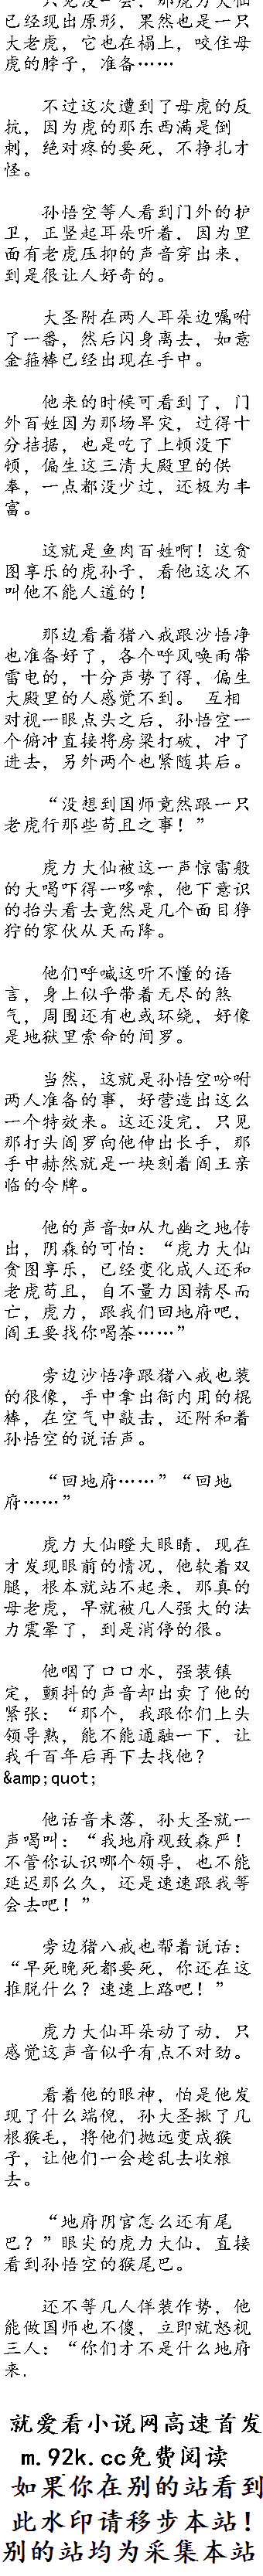 已经现出原形，果然也是一只
大老虎，它也在榻上，咬住母
虎的脖子，准备……
不过这次遭到了母虎的反
抗，因为虎的那东西满是倒
刺，绝对疼的要死，不挣扎才
怪。
孙悟空等人看到门外的护
卫，正竖起耳朵听着，因为里
面有老虎压抑的声音穿出来，
到是很让人好奇的。
大圣附在两人耳朵边嘱咐
了一番，然后闪身离去，如意
金箍棒已经出现在手中。
他来的时候可看到了，门
外百姓因为那场旱灾，过得十
分拮据，也是吃了上顿没下
顿，偏生这三清大殿里的供
奉，一点都没少过，还极为丰
富。
这就是鱼肉百姓啊！这贪
图享乐的虎孙子，看他这次不
叫他不能人道的！
那边看着猪八戒跟沙悟净
也准备好了，各个呼风唤雨带
雷电的，十分声势了得，偏生
大殿里的人感觉不到。 互相
对视一眼点头之后，孙悟空一
个俯冲直接将房梁打破，冲了
进去，另外两个也紧随其后。
“没想到国师竟然跟一只
老虎行那些苟且之事！”
虎力大仙被这一声惊雷般
的大喝吓得一哆嗦，他下意识
的抬头看去竟然是几个面目狰
狞的家伙从天而降。
他们呼喊这听不懂的语
言，身上似乎带着无尽的煞
气，周围还有也或环绕，好像
是地狱里索命的阎罗。
当然，这就是孙悟空吩咐
两人准备的事，好营造出这么
一个特效来。这还没完，只见
那打头阎罗向他伸出长手，那
手中赫然就是一块刻着阎王亲
临的令牌。
他的声音如从九幽之地传
出，阴森的可怕：“虎力大仙
贪图享乐，已经变化成人还和
老虎苟且，自不量力因精尽而
亡，虎力，跟我们回地府吧，
阎王要找你喝茶……”
旁边沙悟净跟猪八戒也装
的很像，手中拿出衙内用的棍
棒，在空气中敲击，还附和着
孙悟空的说话声。
“回地府……”“回地
府……”
虎力大仙瞪大眼睛，现在
才发现眼前的情况，他软着双
腿，根本就站不起来，那真的
母老虎，早就被几人强大的法
力震晕了，到是消停的很。
他咽了口口水，强装镇
定，颤抖的声音却出卖了他的
紧张：“那个，我跟你们上头
领导熟，能不能通融一下，让
我千百年后再下去找他？
&amp;quot;
他话音未落，孙大圣就一
声喝叫：“我地府观致森严！
不管你认识哪个领导，也不能
延迟那么久，还是速速跟我等
会去吧！”
旁边猪八戒也帮着说话：
“早死晚死都要死，你还在这
推脱什么？速速上路吧！”
虎力大仙耳朵动了动，只
感觉这声音似乎有点不对劲。
看着他的眼神，怕是他发
现了什么端倪，孙大圣揪了几
根猴毛，将他们抛远变成猴
子，让他们一会趁乱去收粮
去。
“地府阴官怎么还有尾
巴？”眼尖的虎力大仙，直接
看到孙悟空的猴尾巴。
还不等几人佯装作势，他
能做国师也不傻，立即就怒视
三人：“你们才不是什么地府
来，
就爱看小说网高速首发
m.92k.cc免费阅读
如果你在别的站看到
此水印请移步本站！
别的站均为采集本站